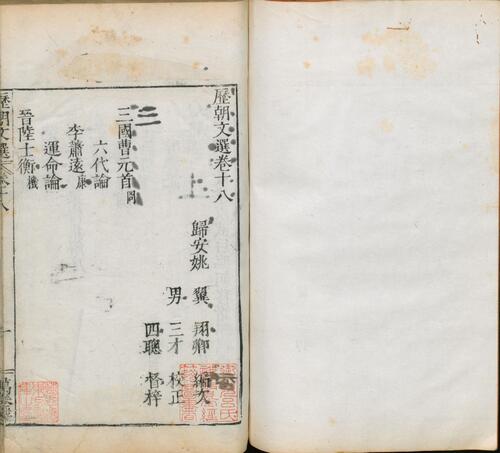 歷朝文選卷十八
歸安姚翼翔卿編次
男三才校正
四聰督梓
三
三國曹元首冏
六代論
李蕭遠康
運命論
晉陸士衡機
歷朝文選卷十八
一